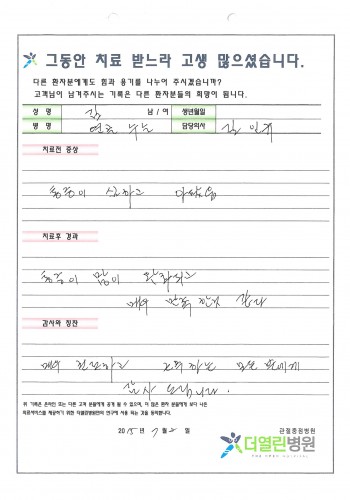 그동안 치료 받느라 고생 많으셨습니다.
다른 환자분에게도 힘과 용기를 나누어 주시겠습니까?
고객님이 남겨주시는 기록은 다른 환자분들의 희망이 됩니다.
성 명 김 남 / 여 생년월일
병 명 연골 담당의사 김
치료전 증상
통증이 심하고
치료후 경과
통증이 많이 완화되고
매우 만족
감사와 칭찬
매우 친절하고 모든 분에게
감사 드립니다.
위 기록은 온라인 또는 다른 고객 분들에게 공개 될 수 있으며, 더 많은 환자 분들에게 보다 나은
의료서비스를 제공하기 위한 더열린병원만의 연구에 사용 되는 것을 동의합니다.
2015년 7월 2 일
관절중점병원
더열린병원